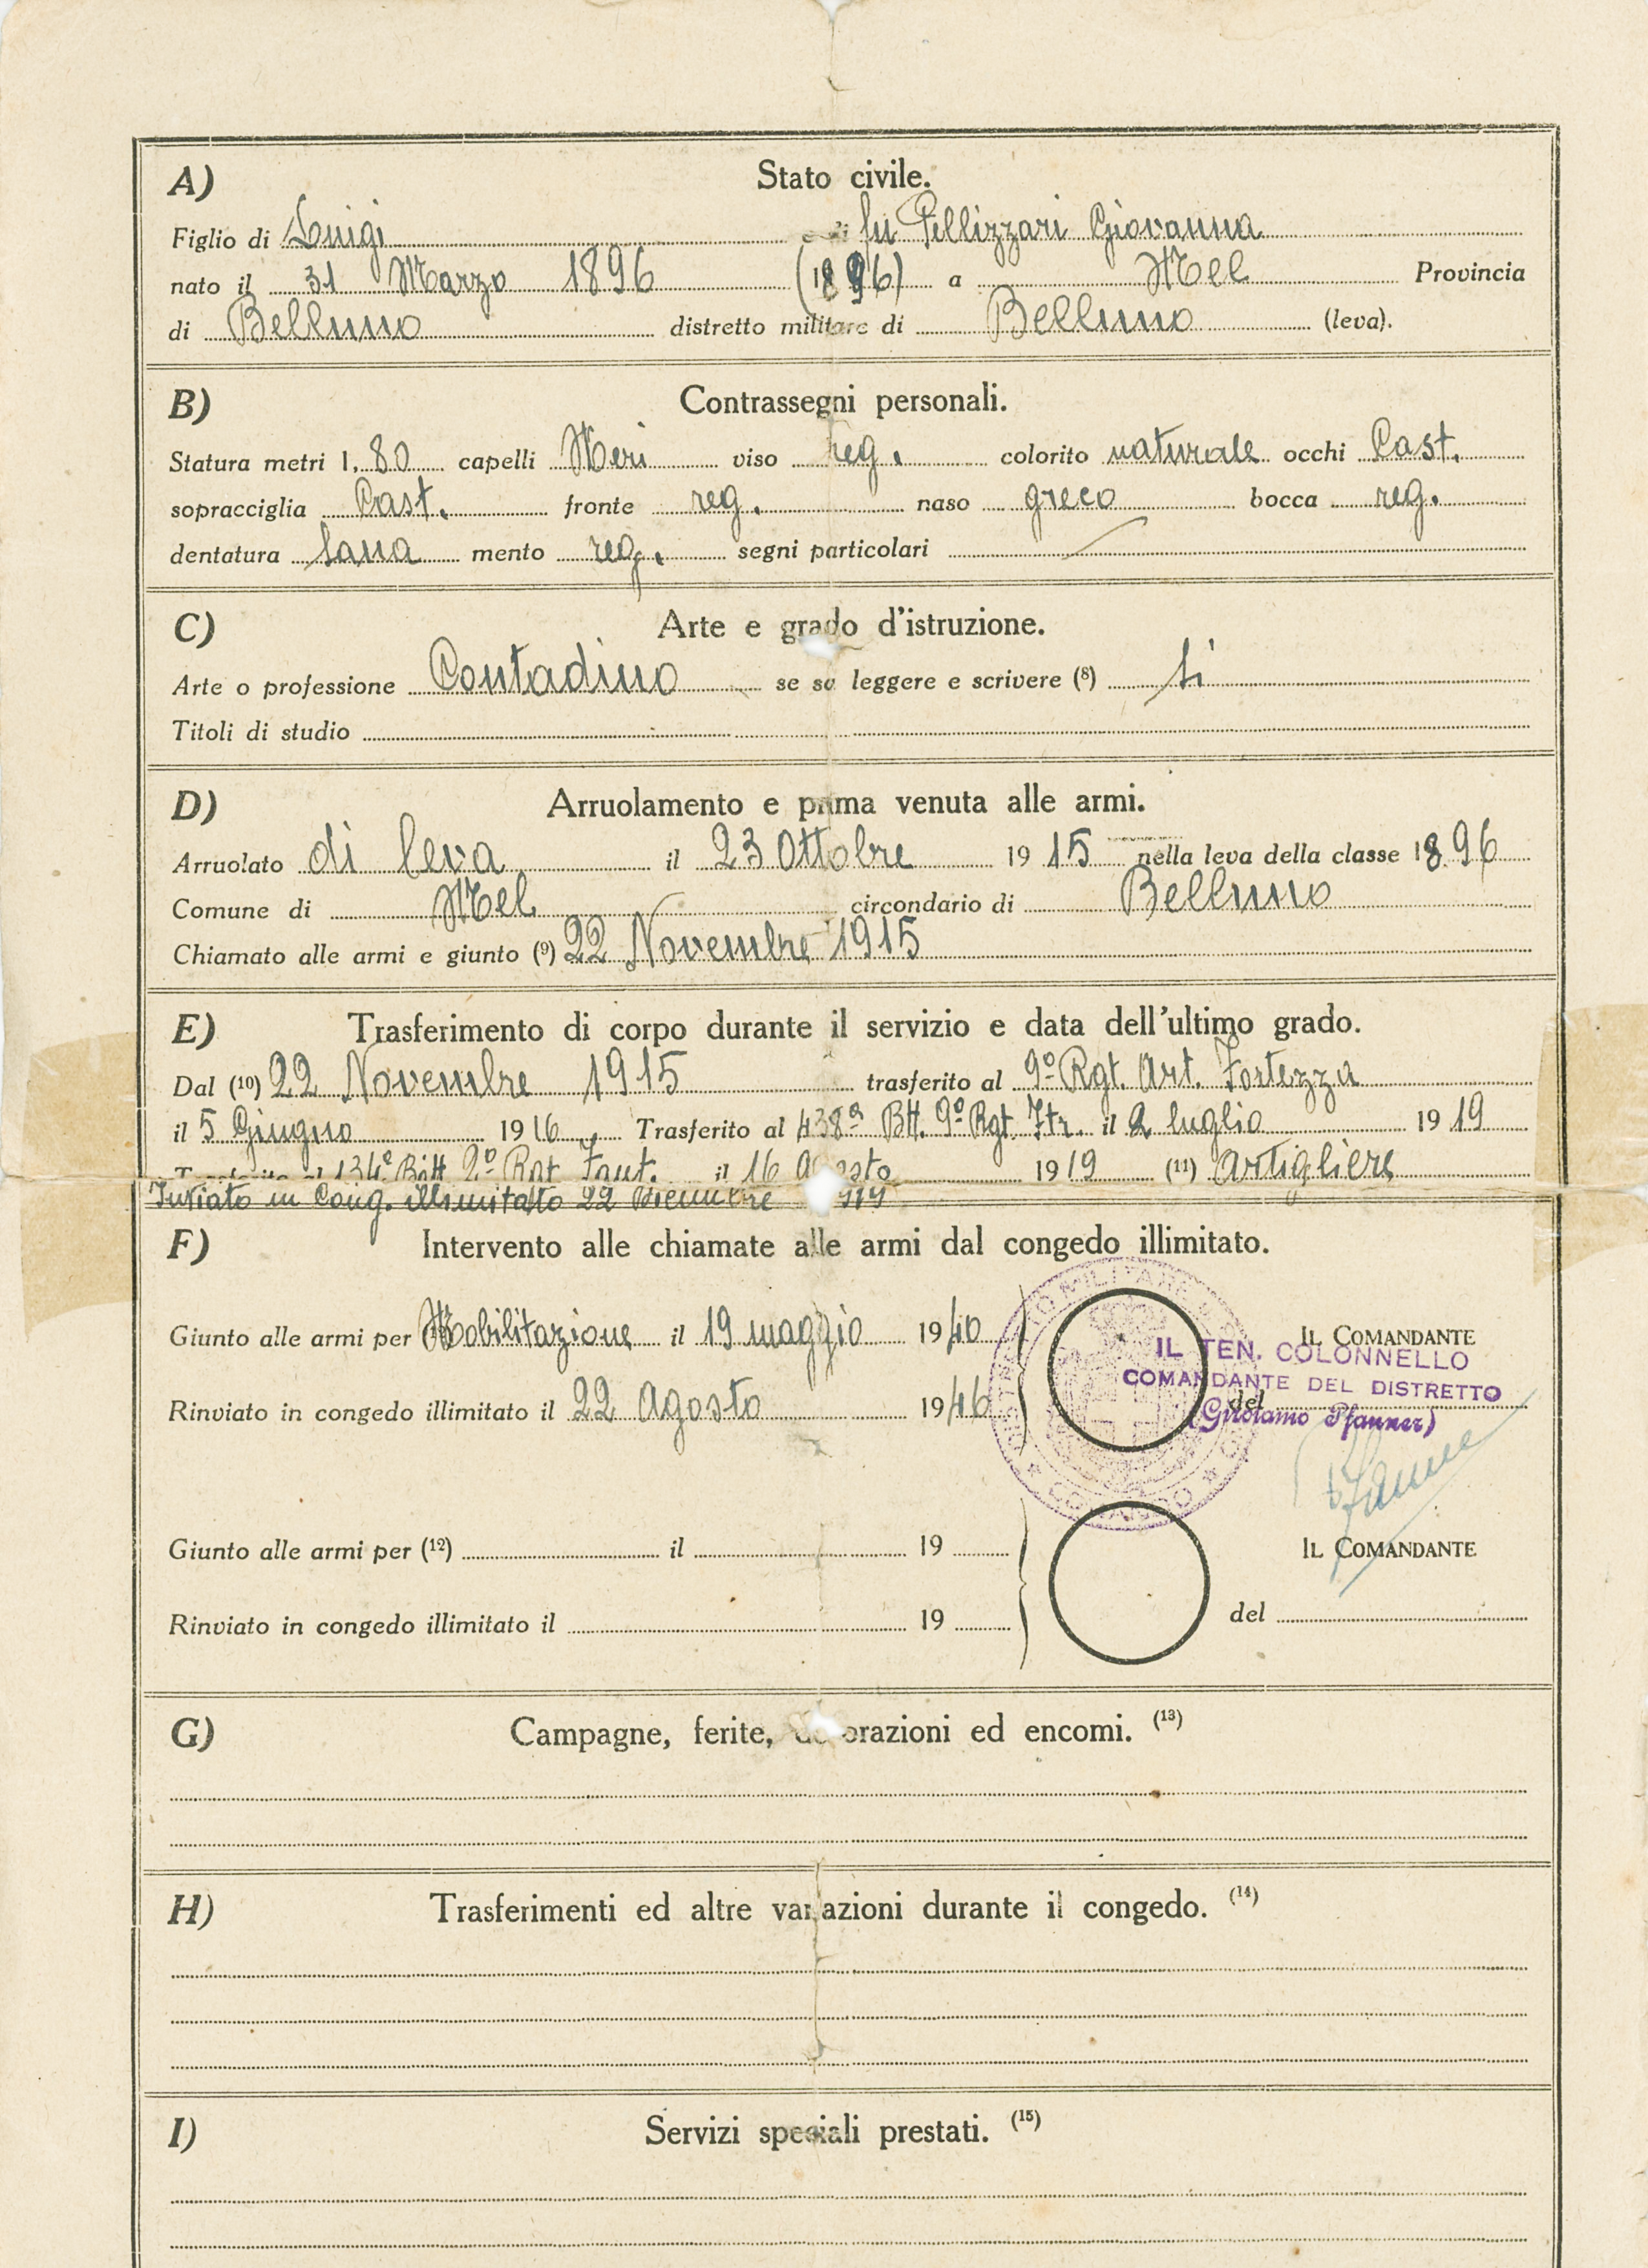 A) Stato civile.
Figlio di Luigi e di fu Pellizzari Giovanna
nato il 31 Marzo 1896 (1896) a Mel Provincia
di Belluno distretto militare di Belluno (leva).
B) Contrassegni personali.
Statura metri 1,80 capelli Neri viso reg. colorito naturale occhi Cast.
sopracciglia Cast. fronte reg. naso greco bocca reg.
dentatura sana mento reg. segni particolari
C) Arte e grado d'istruzione.
Arte o professione Contadino se sa leggere e scrivere (8) si
Titoli di studio
D) Arruolamento e prima venuta alle armi.
Arruolato di leva il 23 Ottobre 1915 nella leva della classe 1896
Comune di Mel circondario di Belluno
Chiamato alle armi e giunto (9) 22 Novembre 1915
E) Trasferimento di corpo durante il servizio e data dell'ultimo grado.
Dal (10) 22 Novembre 1915 trasferito al 9º Rgt. Art. Fortezza
il 5 Giugno 1916 Trasferito al 438ª Btt. 9º Rgt. Ftr. il 2 luglio 1919
Trasferito al 134º Batt. 2º Rgt. Fant. il 16 Agosto 1919 (11) Artigliere
Inviato in Cong. illimitato 22 1919
F) Intervento alle chiamate alle armi dal congedo illimitato.
Giunto alle armi per Mobilitazione il 19 maggio 1940 IL COMANDANTE
IL TEN. COLONNELLO
COMANDANTE DEL DISTRETTO
Rinviato in congedo illimitato il 22 Agosto 1946 del
(Girolamo Pfanner)
Pfanner
Giunto alle armi per (12) il 19 IL COMANDANTE
Rinviato in congedo illimitato il 19 del
G) Campagne, ferite, decorazioni ed encomi. (13)
H) Trasferimenti ed altre variazioni durante il congedo. (14)
I) Servizi speciali prestati. (15)